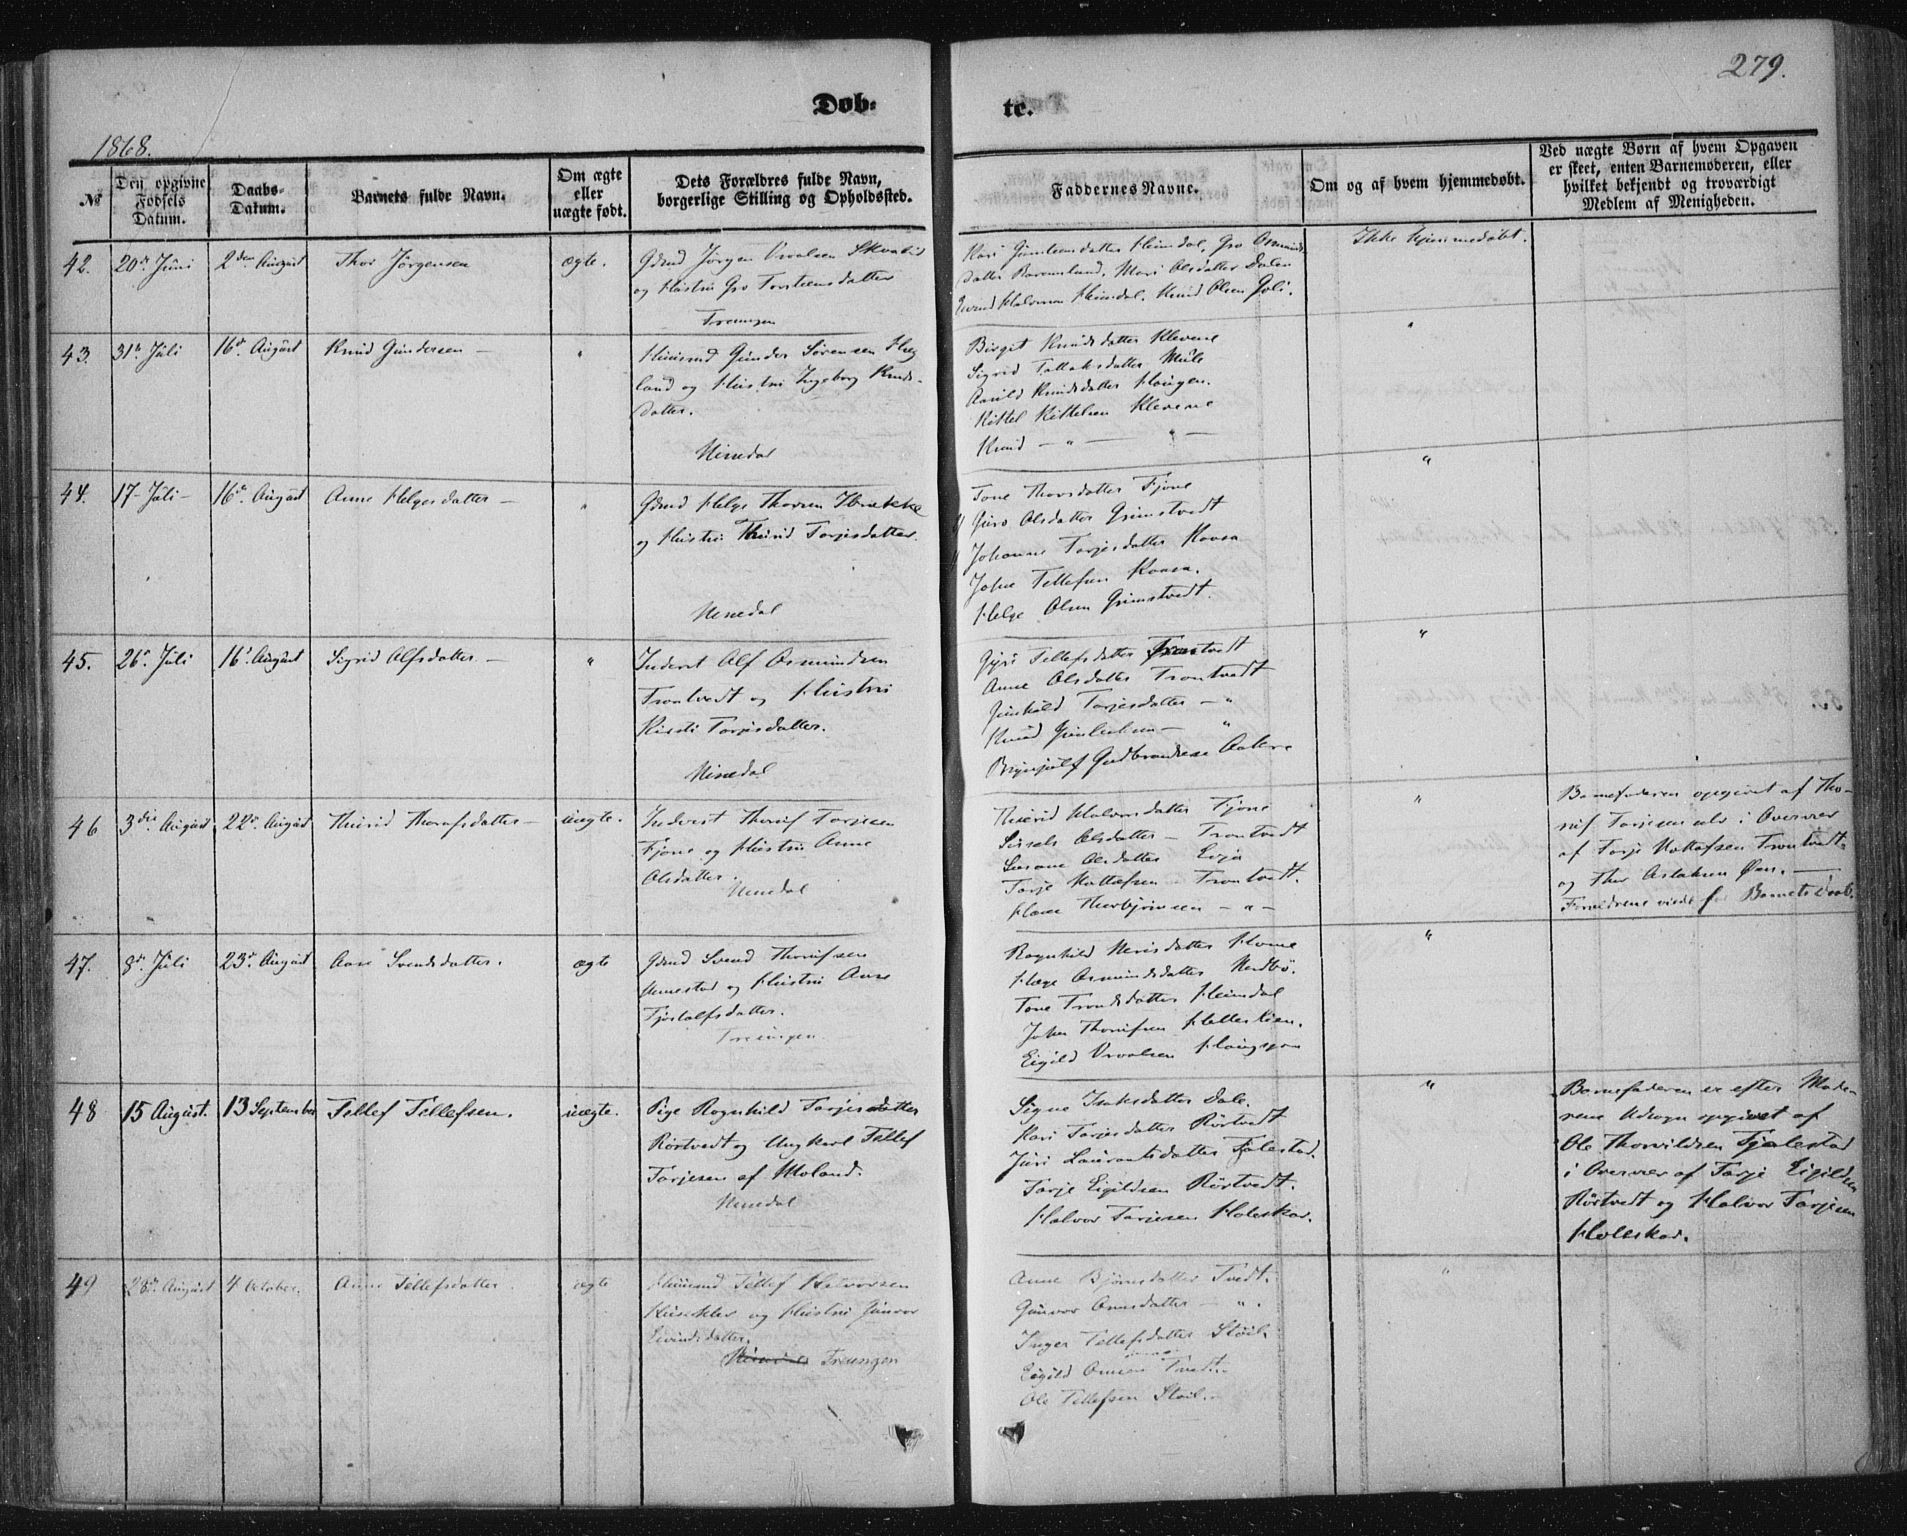 279.
Døb-
te.
1868.
№
Den opgivne Fødsels Datum.
Daabs-Datum.
Barnets fulde Navn.
Om ægte eller uægte født.
Dets Forældres fulde Navn, borgerlige Stilling og Opholdssted.
Faddernes Navne.
Om og af hvem hjemmedøbt.
Ved uægte Børn af hvem Opgaven er skeet, enten Barnemoderen, eller hvilket bekjendt og troværdigt Medlem af Menigheden.
42.
20de Juni
2den August
Thor Jørgensen
ægte.
Gdmd Jørgen
og Hustru Gro Torstensdatter
Treungen
Kari Gunleiksdatter Heimdal, Gro Osmunds
datter Mari Olsdatter Dalen
Halvorsen Heimdal. Knud Olsen
Ikke hjemmedøbt.
43.
31te Juli
16de August
Knud Gundersen —
"
Huusmd Gunder Sørensen Høg
land og Hustru Ingeborg Knuds-
datter.
Nissedal
Birgit Knudsdatter Klevene
Sigrid Tallaksdatter Mule
Knudsdatter Haugen.
Kittel Kittelsen Klevene
Knud — " — " —
"
44.
17- Juli -
16de August
Anne Helgesdatter —
"
Gdmd Helge Thorsen
og Hustru Thurid Torjesdatter.
Nissedal
Tone Thorsdatter Fjone
Guro Olsdatter Grimstvedt
Johanne Torjesdatter Kaasa
John Tellefsen Kaasa.
Helge Olsen Grimstvedt.
"
45.
26de Juli
16de August
Sigrid Alfsdatter —
"
Inderst Alf Osmundsen
Trontvedt og Hustru
Kirsti Torjesdatter.
Nissedal
Gyri Tellefsdatter
Anne Olsdatter Trontvedt
Gunhild Torjesdatter — "
Knud — "
Brynjulf Gudbrandsen
"
46
3die August
22de August
Thurid Thorufsdatter —
uægte.
Inderst Thoruf Torjesen
Fjone og Hustru Anne
Olsdatter.
Nissedal
Thurid Halvorsdatter Fjone
Sissel Olsdatter — Trontvedt
Susane Olsdatter
Torje — Trontvedt.
Thorbjørnsen — " —
"
Barnefaderen opgivet af Tho-
ruf Torjesen selv i Overvær
af Torje Trontvedt
og Thor Aslaksen Øen. —
Forældrene viede før Barnets Daab.
47.
8de Juli
23de August
Aase Svendsdatter.
ægte
Gdmd Svend Thorufsen
og Hustru Anne
Fjostolfsdatter.
Treungen
Ragnhild Nerisdatter
Hæge Osmundsdatter
Tone Trondsdatter Heimdal
John Thorufsen
Eigild
"
48
15 August.
13 September
Tellef Tellefsen.
uægte.
Pige Ragnhild Torjesdatter
Rørtvedt og Ungkarl Tellef
Torjesen af Moland.
Nissedal
Signe Isaksdatter Dale.
Kari Torjesdatter Rørtvedt
Juri Laurantsdatter Fjalestad.
Torje Eigildsen Rørtvedt.
Halvor Torjesen Holeskar.
"
Barnefaderen er efter Mode-
rens Udsagn opgivet af
Ole Thorvildsen Fjalestad
i Overvær af Torje Eigildsen
Rørtvedt og Halvor Torjesen
Holeskar.
49
28de August
4 October.
Anne Tellefsdatter
ægte
Huusmd Tellef Halvorsen
og Hustru Gunvor
Eivindsdatter.
Treungen
Anne Bjørnsdatter Tvedt.
Gunvor Onnsdatter — " .
Inger Tellefsdatter Støil
Eigild Onnsen Tvedt.
Ole Tellefsen Støil.
"